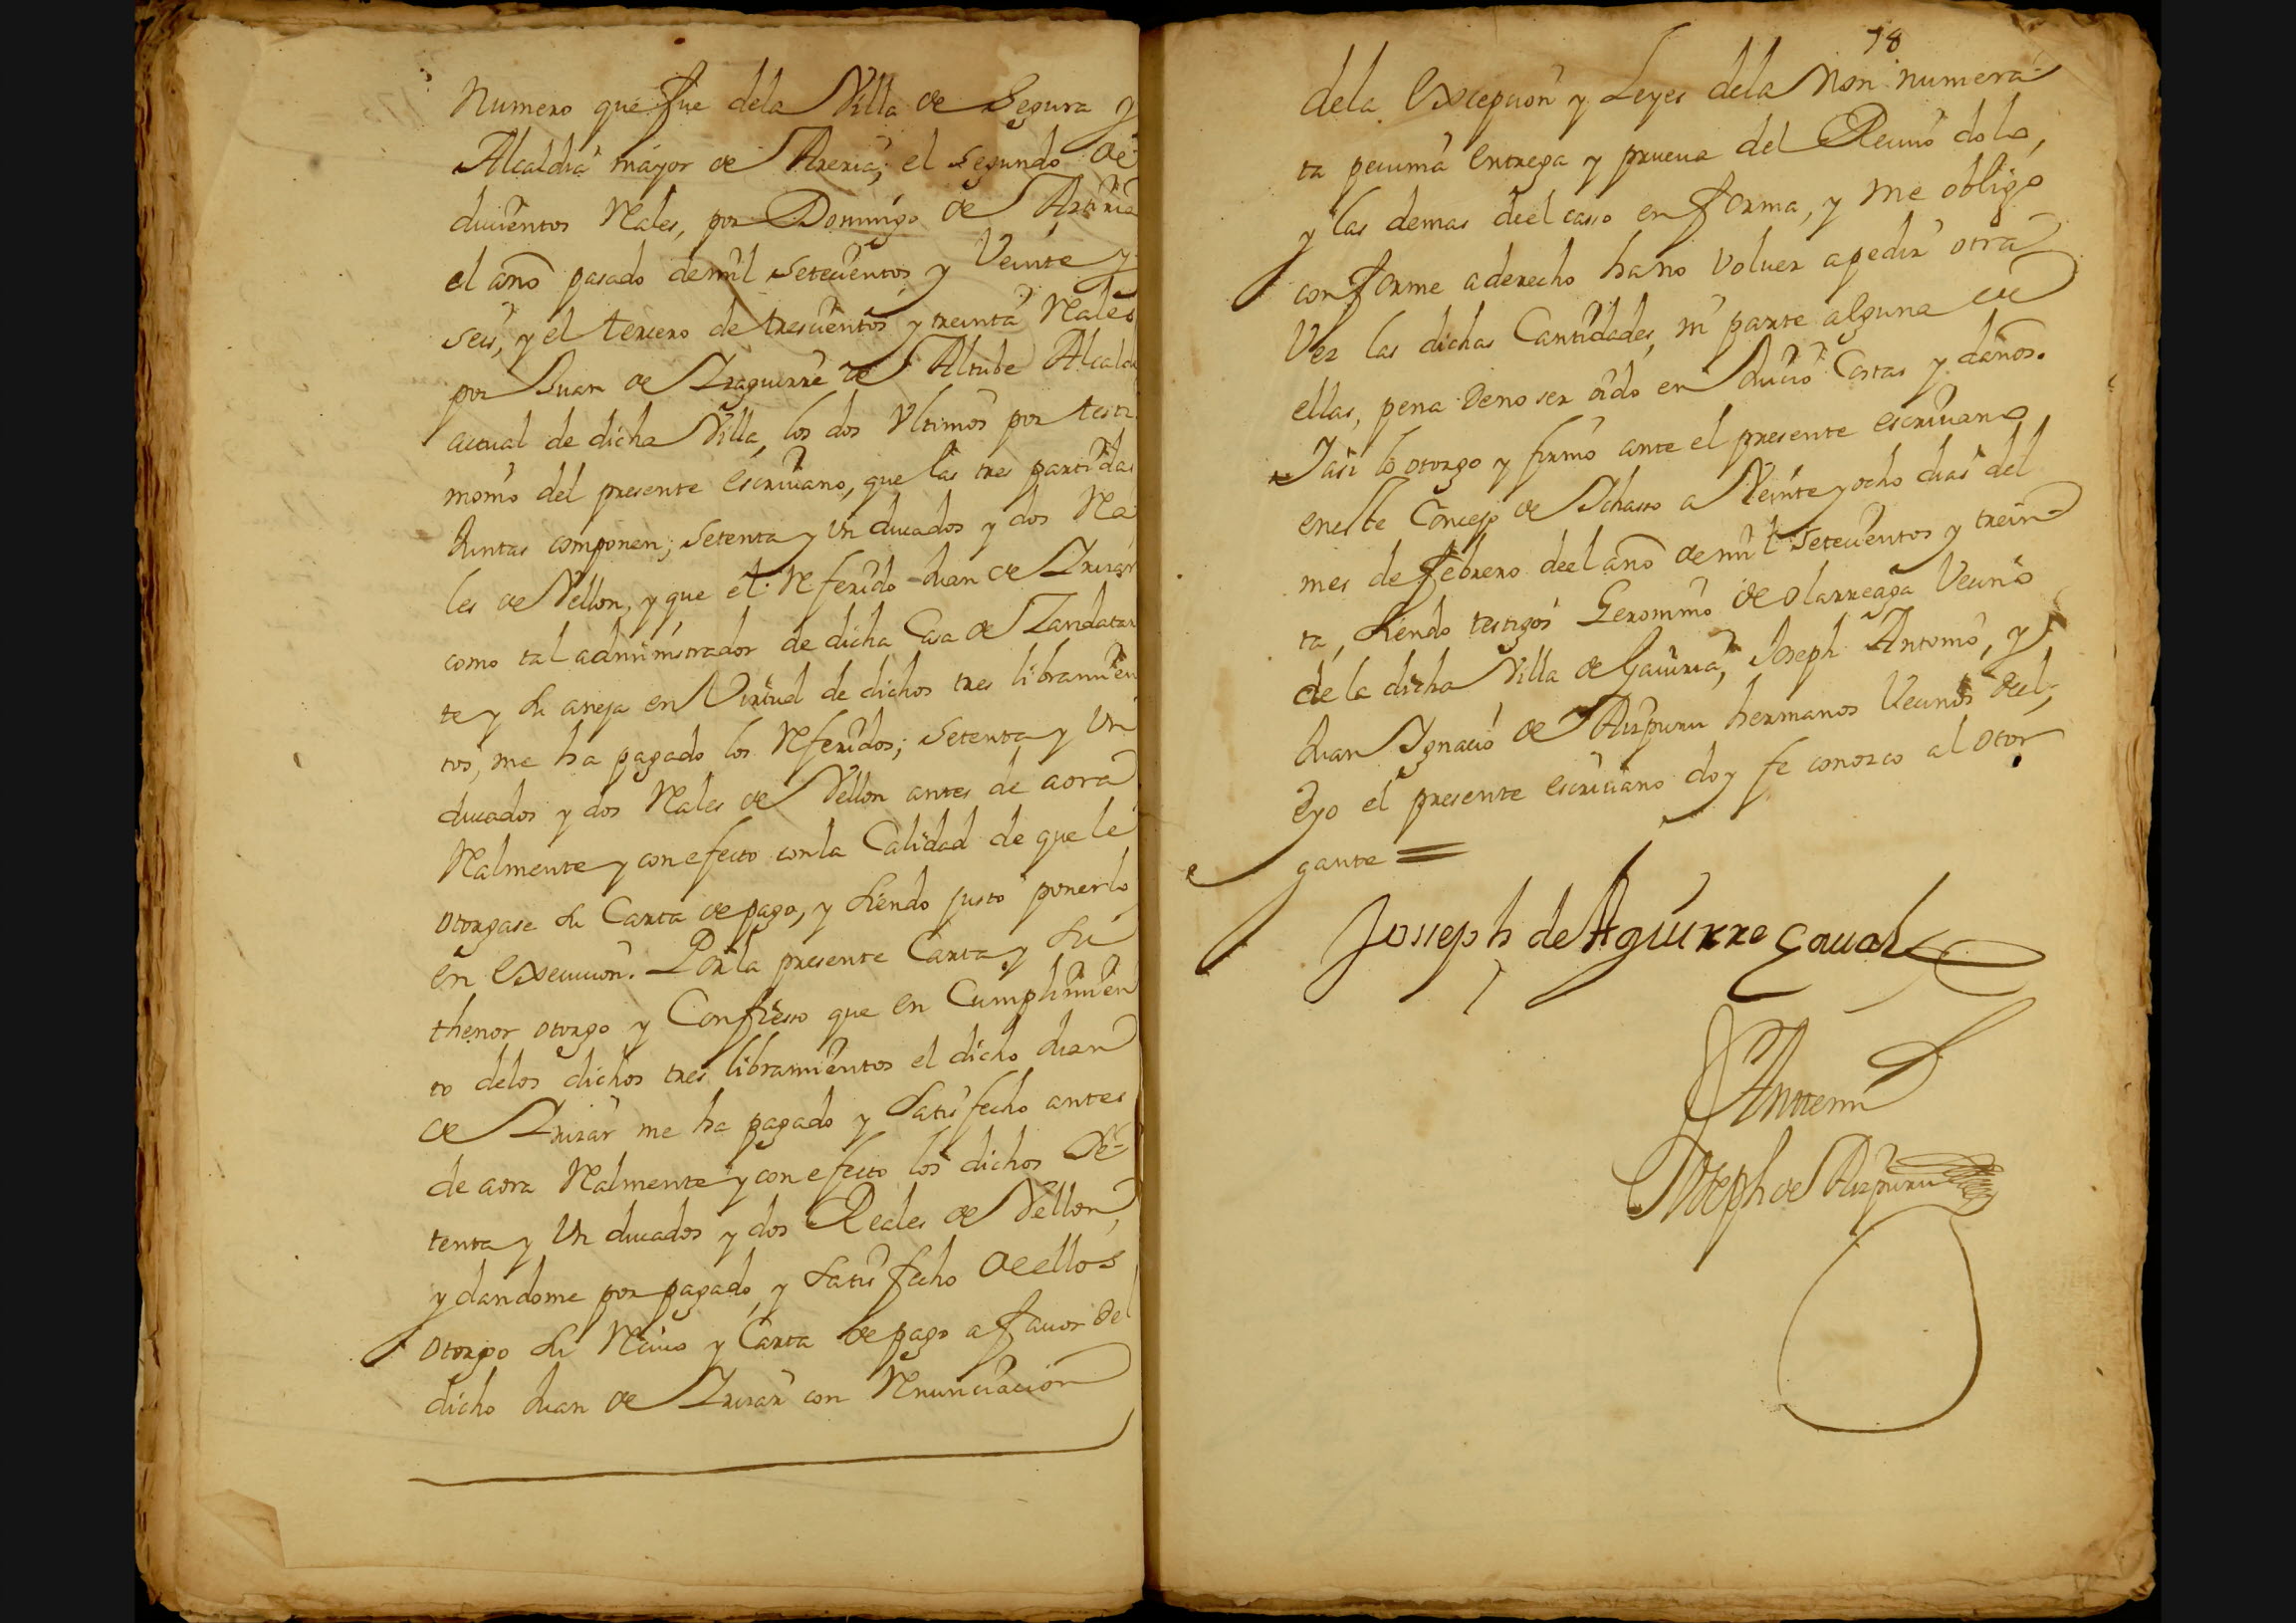 Numero que fue dela Villa de Segura y
Alcaldia mayor de Areria; el segundo de
ducientos Rales, por Domingo de
el año pasado demil setecientos y Veinte y
seis, y el tercero de trescientos y treinta Rales
por Juan de Yraguirre de Altube Alcalde
actual de dicha Villa, los dos Ultimos por testi
monio del presente escriuano, que las tres partidas
Juntas componen; setenta y Un ducados y dos Rea
les de Vellon, y que el Referido Juan de Yrizar
como tal administrador de dicha Casa de Zandatar
te y su aneja en Virtud de dichos tres libramien
tos, me ha pagado los Referidos; setenta y Un
ducados y dos Rales de Vellon antes de aora
Ralmente y con efecto conla Calidad de que le
otorgase su Carta de pago, y siendo justo ponerlo
en execucion. Porla presente Carta y su
thenor otorgo y Confiesso que en Cumplimien
to delos dichos tres libramientos el dicho Juan
de Yrizar me ha pagado y satisfecho antes
de aora Ralmente y con efecto los dichos se-
tenta y Un ducados y dos Reales de Vellon,
y dandome por pagado, y satisfecho de ellos
otorgo su Reciuo y Carta de pago a fauor del
dicho Juan de Yrizar con Renunciacion
78
dela excepcion y Leyes dela Non numera-
ta pecunia entrega y prueua del Reciuo dolo,
y las demas deel casso en forma, y me obligo
conforme a derecho ha no Voluer a pedir otra
Vez las dichas Cantidades, ni parte alguna de
ellas, pena deno ser oido en Juicio Costas y daños.
Yasi lo otorgo y firmo ante el presente escriuano
eneste Concejo de Ichasso a Veinte y ocho dias del
mes de febrero deel año de mil setecientos y trein
ta, siendo testigos Geronimo de olarreaga Vecino
de la dicha Villa de Gauiria, Joseph Antonio, y
Juan Ygnacio de Aizpuru hermanos Vecinos deel,
Eyo el presente escriuano doy fe conozco al otor
gante =
Josseph de Aguirre
Antemi
Joseph de Aizpuru